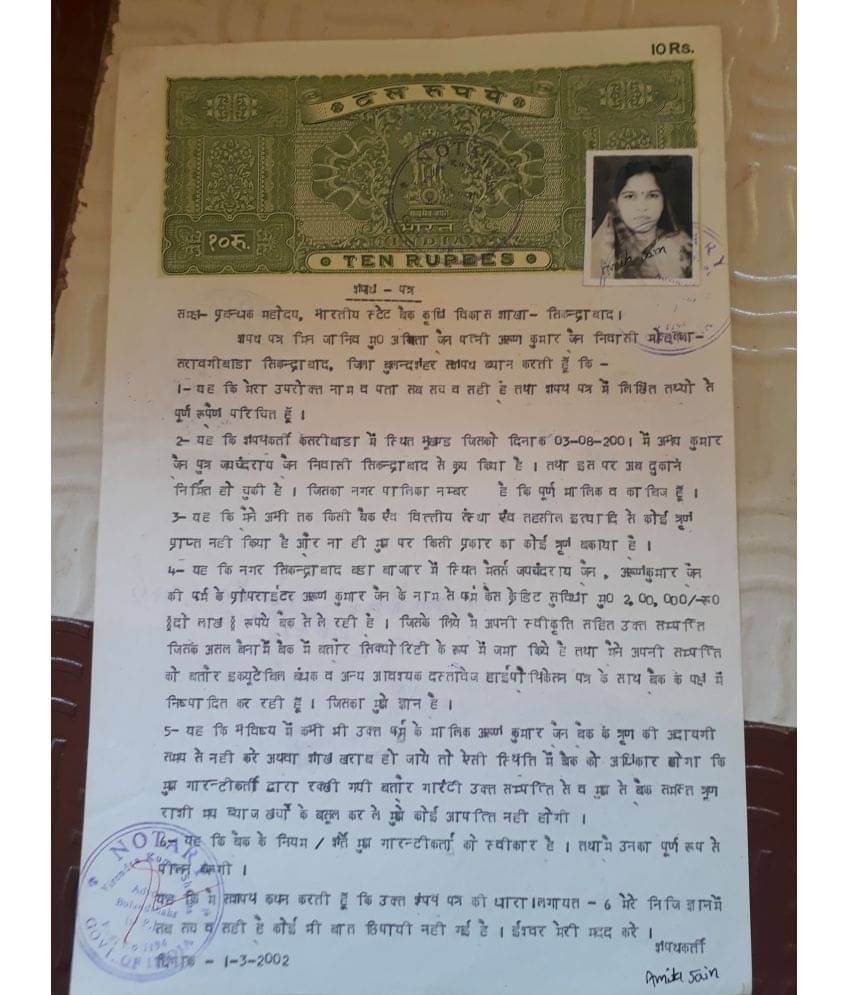 10 Rs.
दस रुपये
NOTARY
१०रु.
भारत
INDIA
TEN RUPEES
Amita Jain
शपथ - पत्र
समक्ष- प्रबन्धक महोदय, भारतीय स्टेट बैंक कृषि विकास शाखा- सिकन्द्राबाद।
शपथ पत्र मिन जानिव मु0 अमिता जैन पत्नी अरूण कुमार जैन निवासी मोहल्ला-
सरावगीबाडा सिकन्द्राबाद, जिला बुलन्दशहर सशपथ ब्यान करती हूँ कि -
1- यह कि मेरा उपरोक्त नाम व पता सब सच व सही है तथा शपथ पत्र में लिखित तथ्यो से
पूर्ण रूपेण परिचित हूँ।
2- यह कि शपथकर्ता केसरीबाडा में स्थित भूखण्ड जिसको दिनांक 03-08-2001 में अभय कुमार
जैन पुत्र जयचंदराय जैन निवासी सिकन्द्राबाद से क्रय किया है। तथा इस पर अब दुकाने
निर्मित हो चुकी है। जिसका नगर पालिका नम्बर है कि पूर्ण मालिक व काबिज हूँ।
3- यह कि मैने अभी तक किसी बैंक एंव वित्तीय संस्था एंव तहसील इत्यादि से कोई ऋण
प्राप्त नही किया है और ना ही मुझ पर किसी प्रकार का कोई ऋण बकाया है।
4- यह कि नगर सिकन्द्राबाद बडा बाजार में स्थित मैसर्स जयचंदराय जैन, अरूणकुमार जैन
की फर्म के प्रोपराईटर अरूण कुमार जैन के नाम से फर्म कैस क्रेडिट सुविधा मु0 2,00,000/-रू0
॥दो लाख॥ रूपये बैंक से ले रही है। जिसके लिये मै अपनी स्वीकृति सहित उक्त सम्पत्ति
जिसके असल बैनामें बैंक में बतौर सिक्योरिटी के रूप में जमा किये है तथा मैने अपनी सम्पत्ति
को बतौर इक्यूटेबिल बंधक व अन्य आवश्यक दस्तावेज हाईपोथिकेसन पत्र के साथ बैंक के पक्ष में
निष्पादित कर रही हूँ। जिसका मुझे ज्ञान है।
5- यह कि भविष्य में कभी भी उक्त फर्म के मालिक अरूण कुमार जैन बैंक के ऋण की अदायगी
समय से नही करे अथवा शाख खराब हो जाये तो ऐसी स्थिति में बैंक को अधिकार होगा कि
मुझ गारन्टीकर्ता द्वारा रक्खी गयी बतौर गारंटी उक्त सम्पत्ति से व मुझ से बैंक समस्त ऋण
राशी मय ब्याज खर्चो के वसूल कर ले मुझे कोई आपत्ति नही होगी।
6- यह कि बैंक के नियम / शर्ते मुझ गारन्टीकर्ता को स्वीकार है। तथा मै उनका पूर्ण रूप से
पालन करूगी।
यह कि मै सशपथ कथन करती हूँ कि उक्त शपथ पत्र की धारा 1लगायत - 6 मेरे निजि ज्ञान में
सब सच व सही है कोई भी बात छिपायी नही गई है। ईश्वर मेरी मदद करे।
शपथकर्ती
दिनांक - 1-3-2002
Amita Jain
NOTARY
GOVT. OF INDIA